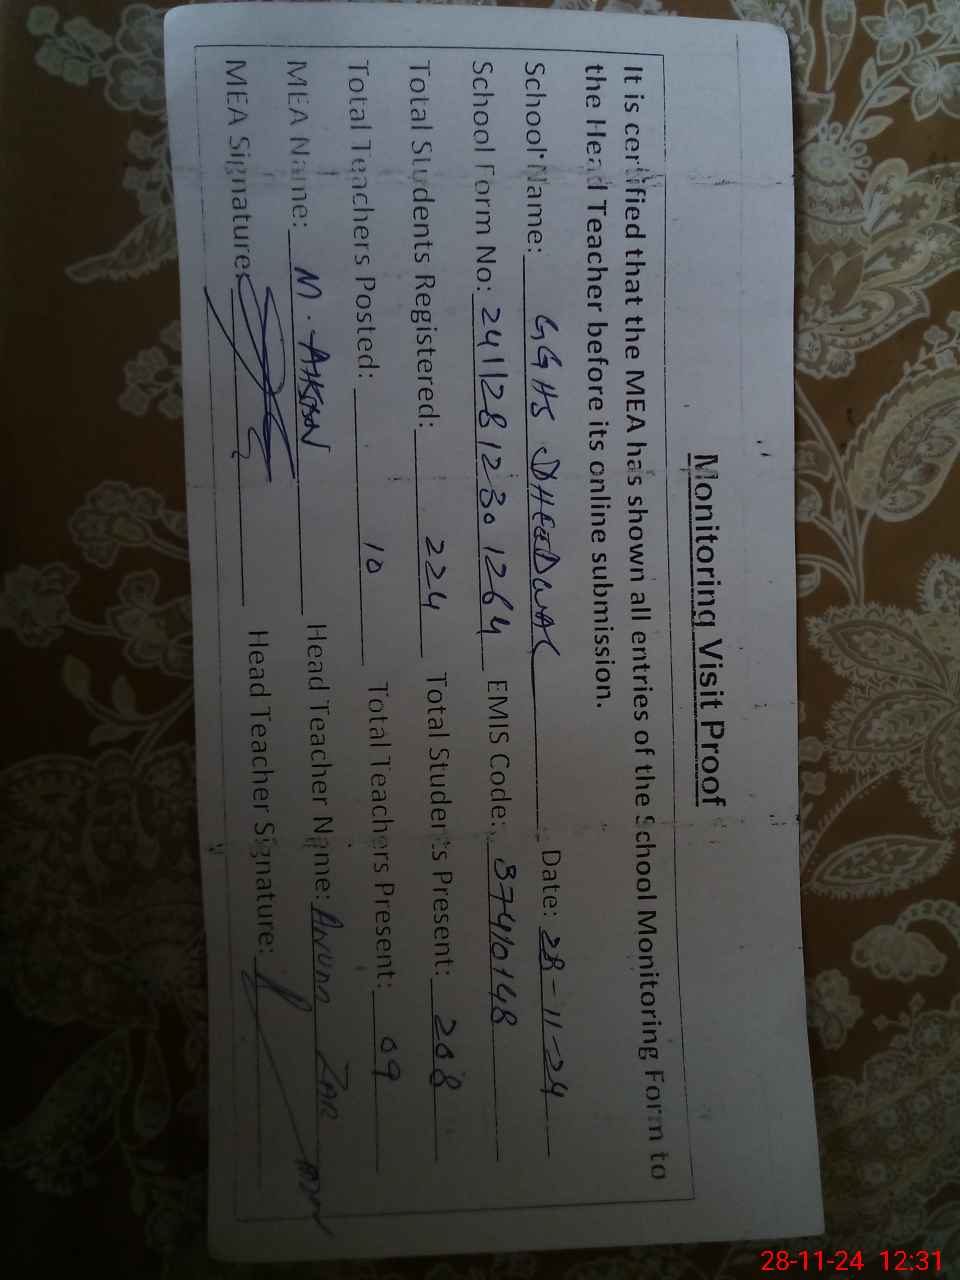 Monitoring Visit Proof
It is certified that the MEA has shown all entries of the School Monitoring Form to
the Head Teacher before its online submission.
School Name: GGHS Date: 28-11-24
School Form No: 24112812301264 EMIS Code: 37410148
Total Students Registered: 224 Total Students Present: 208
Total Teachers Posted: 10 Total Teachers Present: 09
MEA Name: M. Head Teacher Name:
MEA Signature: Head Teacher Signature:
28-11-24 12:31